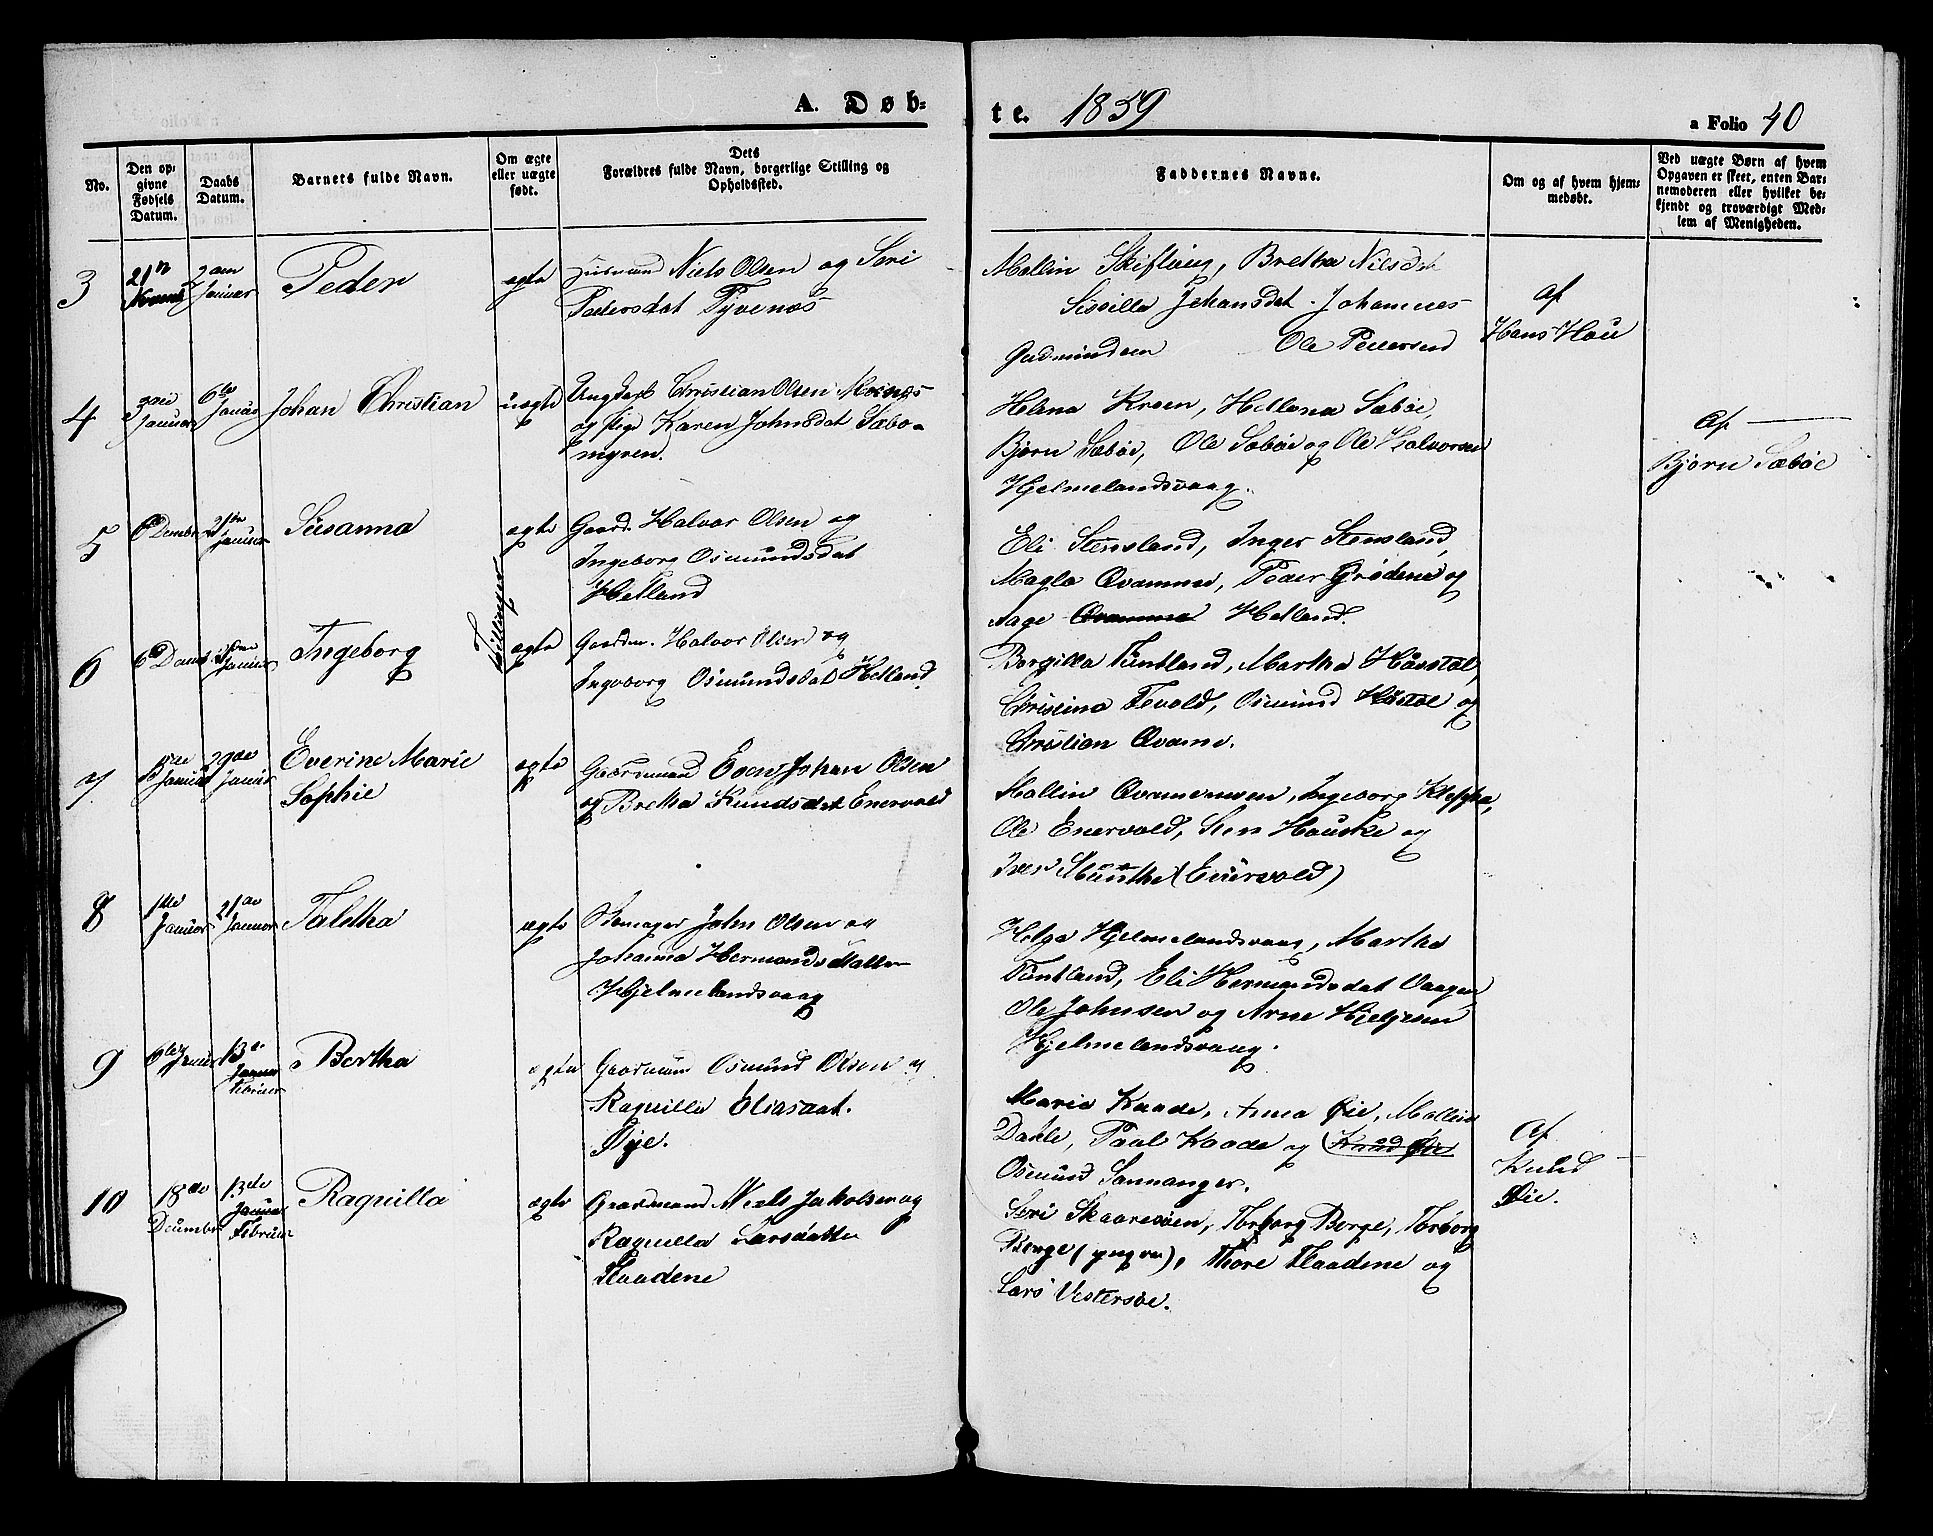 A. Døb=
te. 1859
a Folio 40
No.
Den op=
givne
Fødsels
Datum.
Daabs
Datum.
Barnets fulde Navn.
Om ægte
eller uægte
født.
Dets
Forældres fulde Navn, borgerlige Stilling og
Opholdssted.
Faddernes Navne.
Om og af hvem hjem=
medøbt.
Ved uægte Børn af hvem
Opgaven er skeet, enten Bar=
nemoderen eller hvilket be=
kjendt og troværdigt Med=
lem af Menigheden.
3
21
Januar
Peder
ægte
Huusmand Niels Olsen og Seri
Pedersdat Tyvenæs
Mallin Skiftuns, Bretha Nilsdat
Sissilla Johansdat. Johannes
Gudmundsen Ole Pedersen
af
Hans Hau
4
3die
Januar
6te
Januar
Johan Christian
uægte
Ungkarl Christian Olsen
og Pige Karen Johnsdat Sæbø=
myren.
Helena Kroen, Hellena Sæbøe,
Bjørn Sæbøe, Ole Sæbøe og Ole Halvorsen
Hjelmelandsvaag.
af —
Bjørn Sæbøe
5
6 Decembr
21de
Januar
Susanna
Tvillinger
ægte
Gaard. Halvor Olsen og
Ingeborg Osmundsdat
Helland
Eli Stensland, Inger Stensland,
Magla Qvamme, Peder Grødem og
Aage Qvamme Helland.
6
6
Januar
Ingeborg
ægte
Gaardm. Halvor Olsen og
Ingeborg Osmundsdat Helland.
Borgilla Funtland, Martha Haastøl,
Christina Tevold, Osmund Haastøl og
Christian Qvame.
7
Januar
29de
Januar
Everine Marie
Sophie
ægte
Gaardmand Even Johan Olsen
og Bretha Knudsdat Enervold
Mallin Qvamemoen, Ingeborg Kleppa,
Ole Enervold, Sten Hauske og
Iver Munthe (Enervold)
8
1ste
Januar
21de
Januar
Taletha
ægte
Skomager John Olsen og
Johanna Hermandsdatter
Hjelmelandsvaag
Helga Hjelmelandsvaag, Martha
Funtland, Eli Hermandsdat Vaagen
Ole Johnsen og Arne
Hjelmelandsvaag.
9
6te Januar
13de
Januar
Februar
Bertha
ægte
Gaardmand Osmund Olsen og
Raquilla Eliasdat.
Øye.
Marie Kaade, Anna Øie, Mallin
Dahle, Paul Kaade og (Knud Øie
Osmund Sannanger.
Af
Knud
Øie.
10
18de
Decembr
13de
Januar
Februar
Raquilla
ægte
Gaardmand Niels Jakobsen og
Raquilla Larsdatter
Flaadene
Seri Skaaresøen, Torborg Berge, Torborg
Berge (yngre), Thore Flaadene og
Lars Vestersøe.